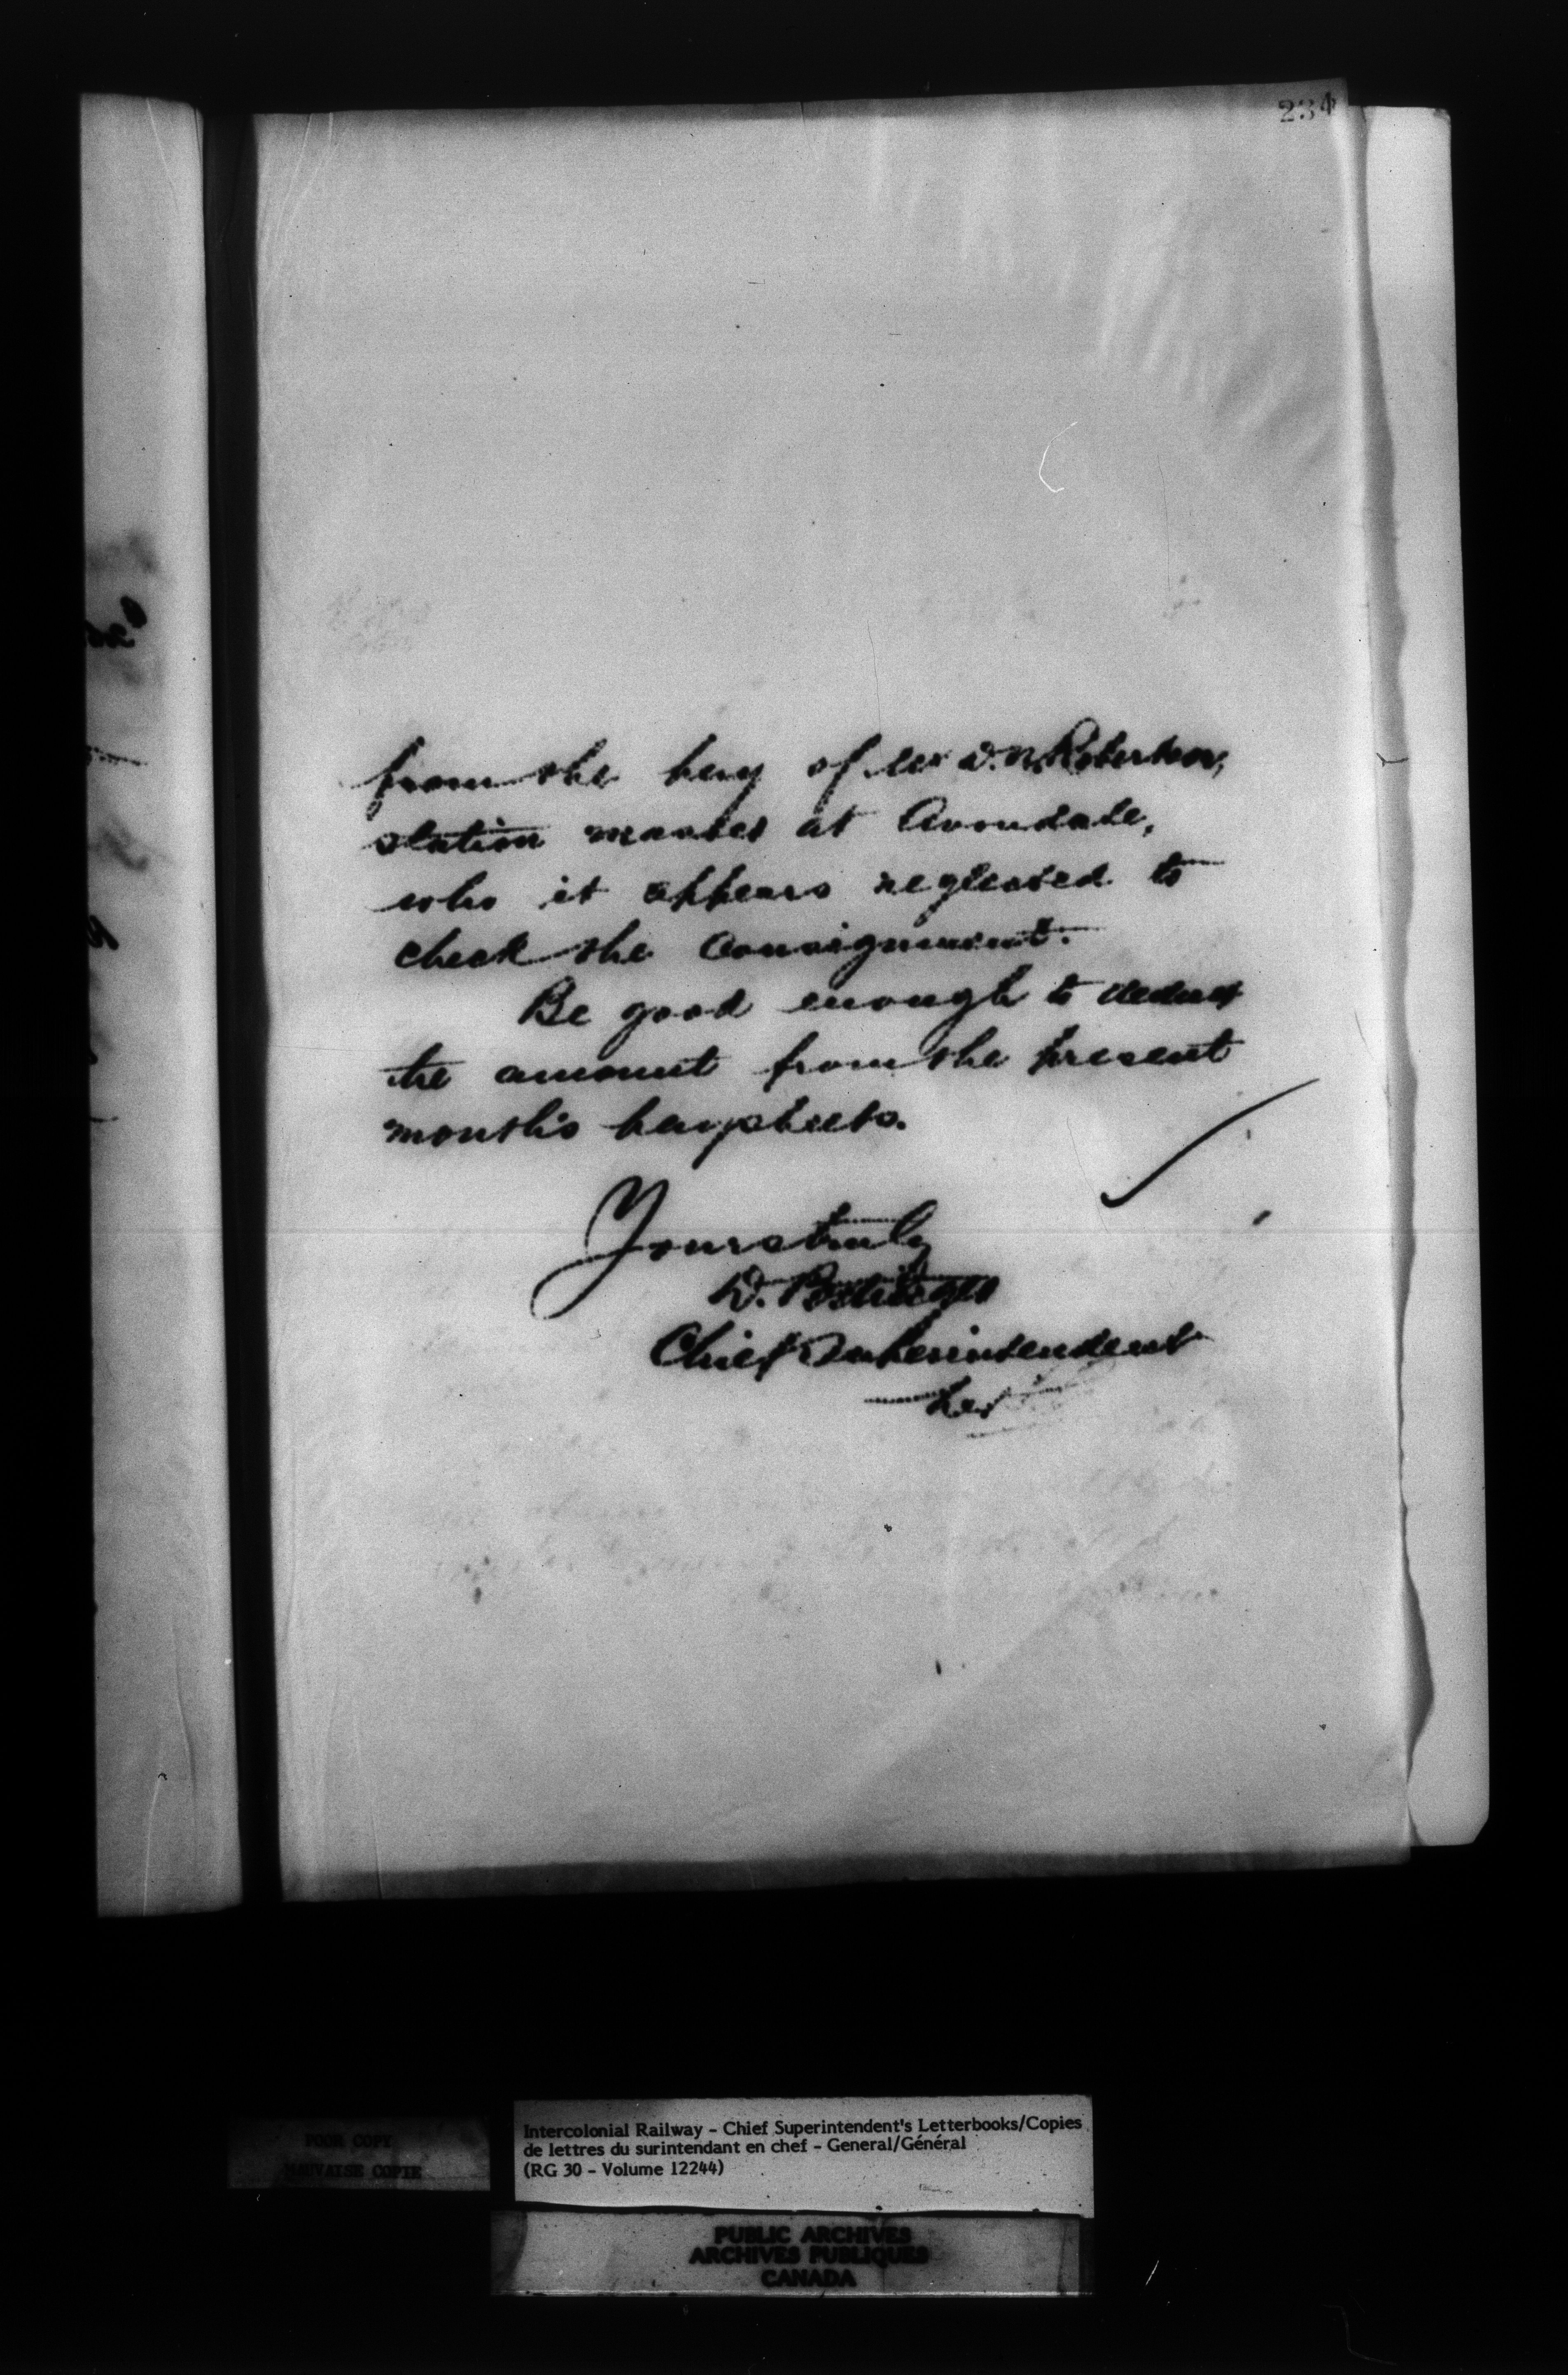 234
from the pay of Mr D. N. Robertson,
station master at Avondale,
who it appears neglected to
check the consignment.
Be good enough to deduct
the amount from the present
month's paysheets.
Yours truly
D. Pottinger
Chief Superintendent
POOR COPY
MAUVAISE COPIE
Intercolonial Railway - Chief Superintendent's Letterbooks/Copies
de lettres du surintendant en chef - General/Général
(RG 30 - Volume 12244)
PUBLIC ARCHIVES
ARCHIVES PUBLIQUES
CANADA